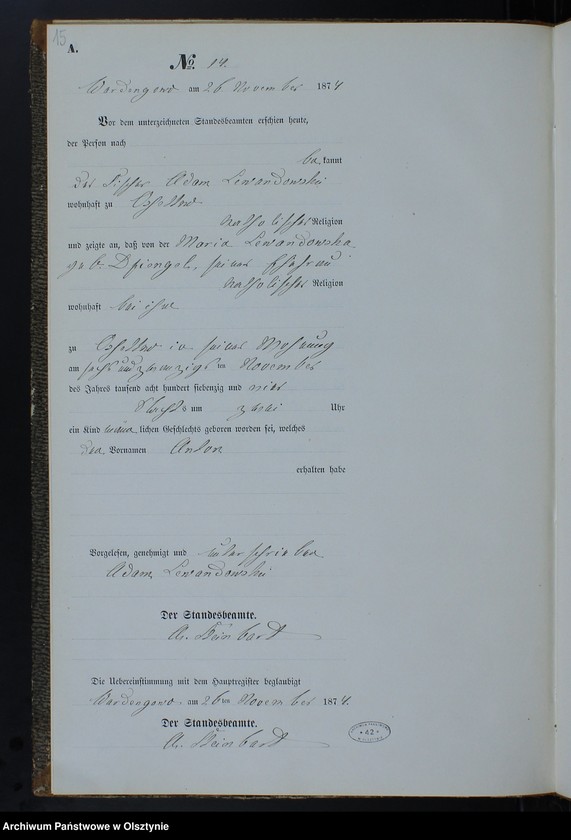 15
A.
No 14.
Wardengowo am 26 November 1874
Vor dem unterzeichneten Standesbeamten erschien heute,
der Person nach
bekannt
der Fischer Adam Lewandowski
wohnhaft zu
katholischer Religion
und zeigte an, daß von der Maria Lewandowska
geb. seiner Ehefrau
katholischer Religion
wohnhaft bei ihm
zu in seiner Wohnung
am sechs und zwanzigsten November
des Jahres tausend acht hundert siebenzig und vier
Nachts um zwei Uhr
ein Kind männlichen Geschlechts geboren worden sei, welches
den Vornamen Anton
erhalten habe
Vorgelesen, genehmigt und unterschrieben
Adam Lewandowski
Der Standesbeamte.
Die Uebereinstimmung mit dem Hauptregister beglaubigt
Wardengowo am 26ten November 1874.
Der Standesbeamte.
* 42 *
Archiwum Państwowe w Olsztynie